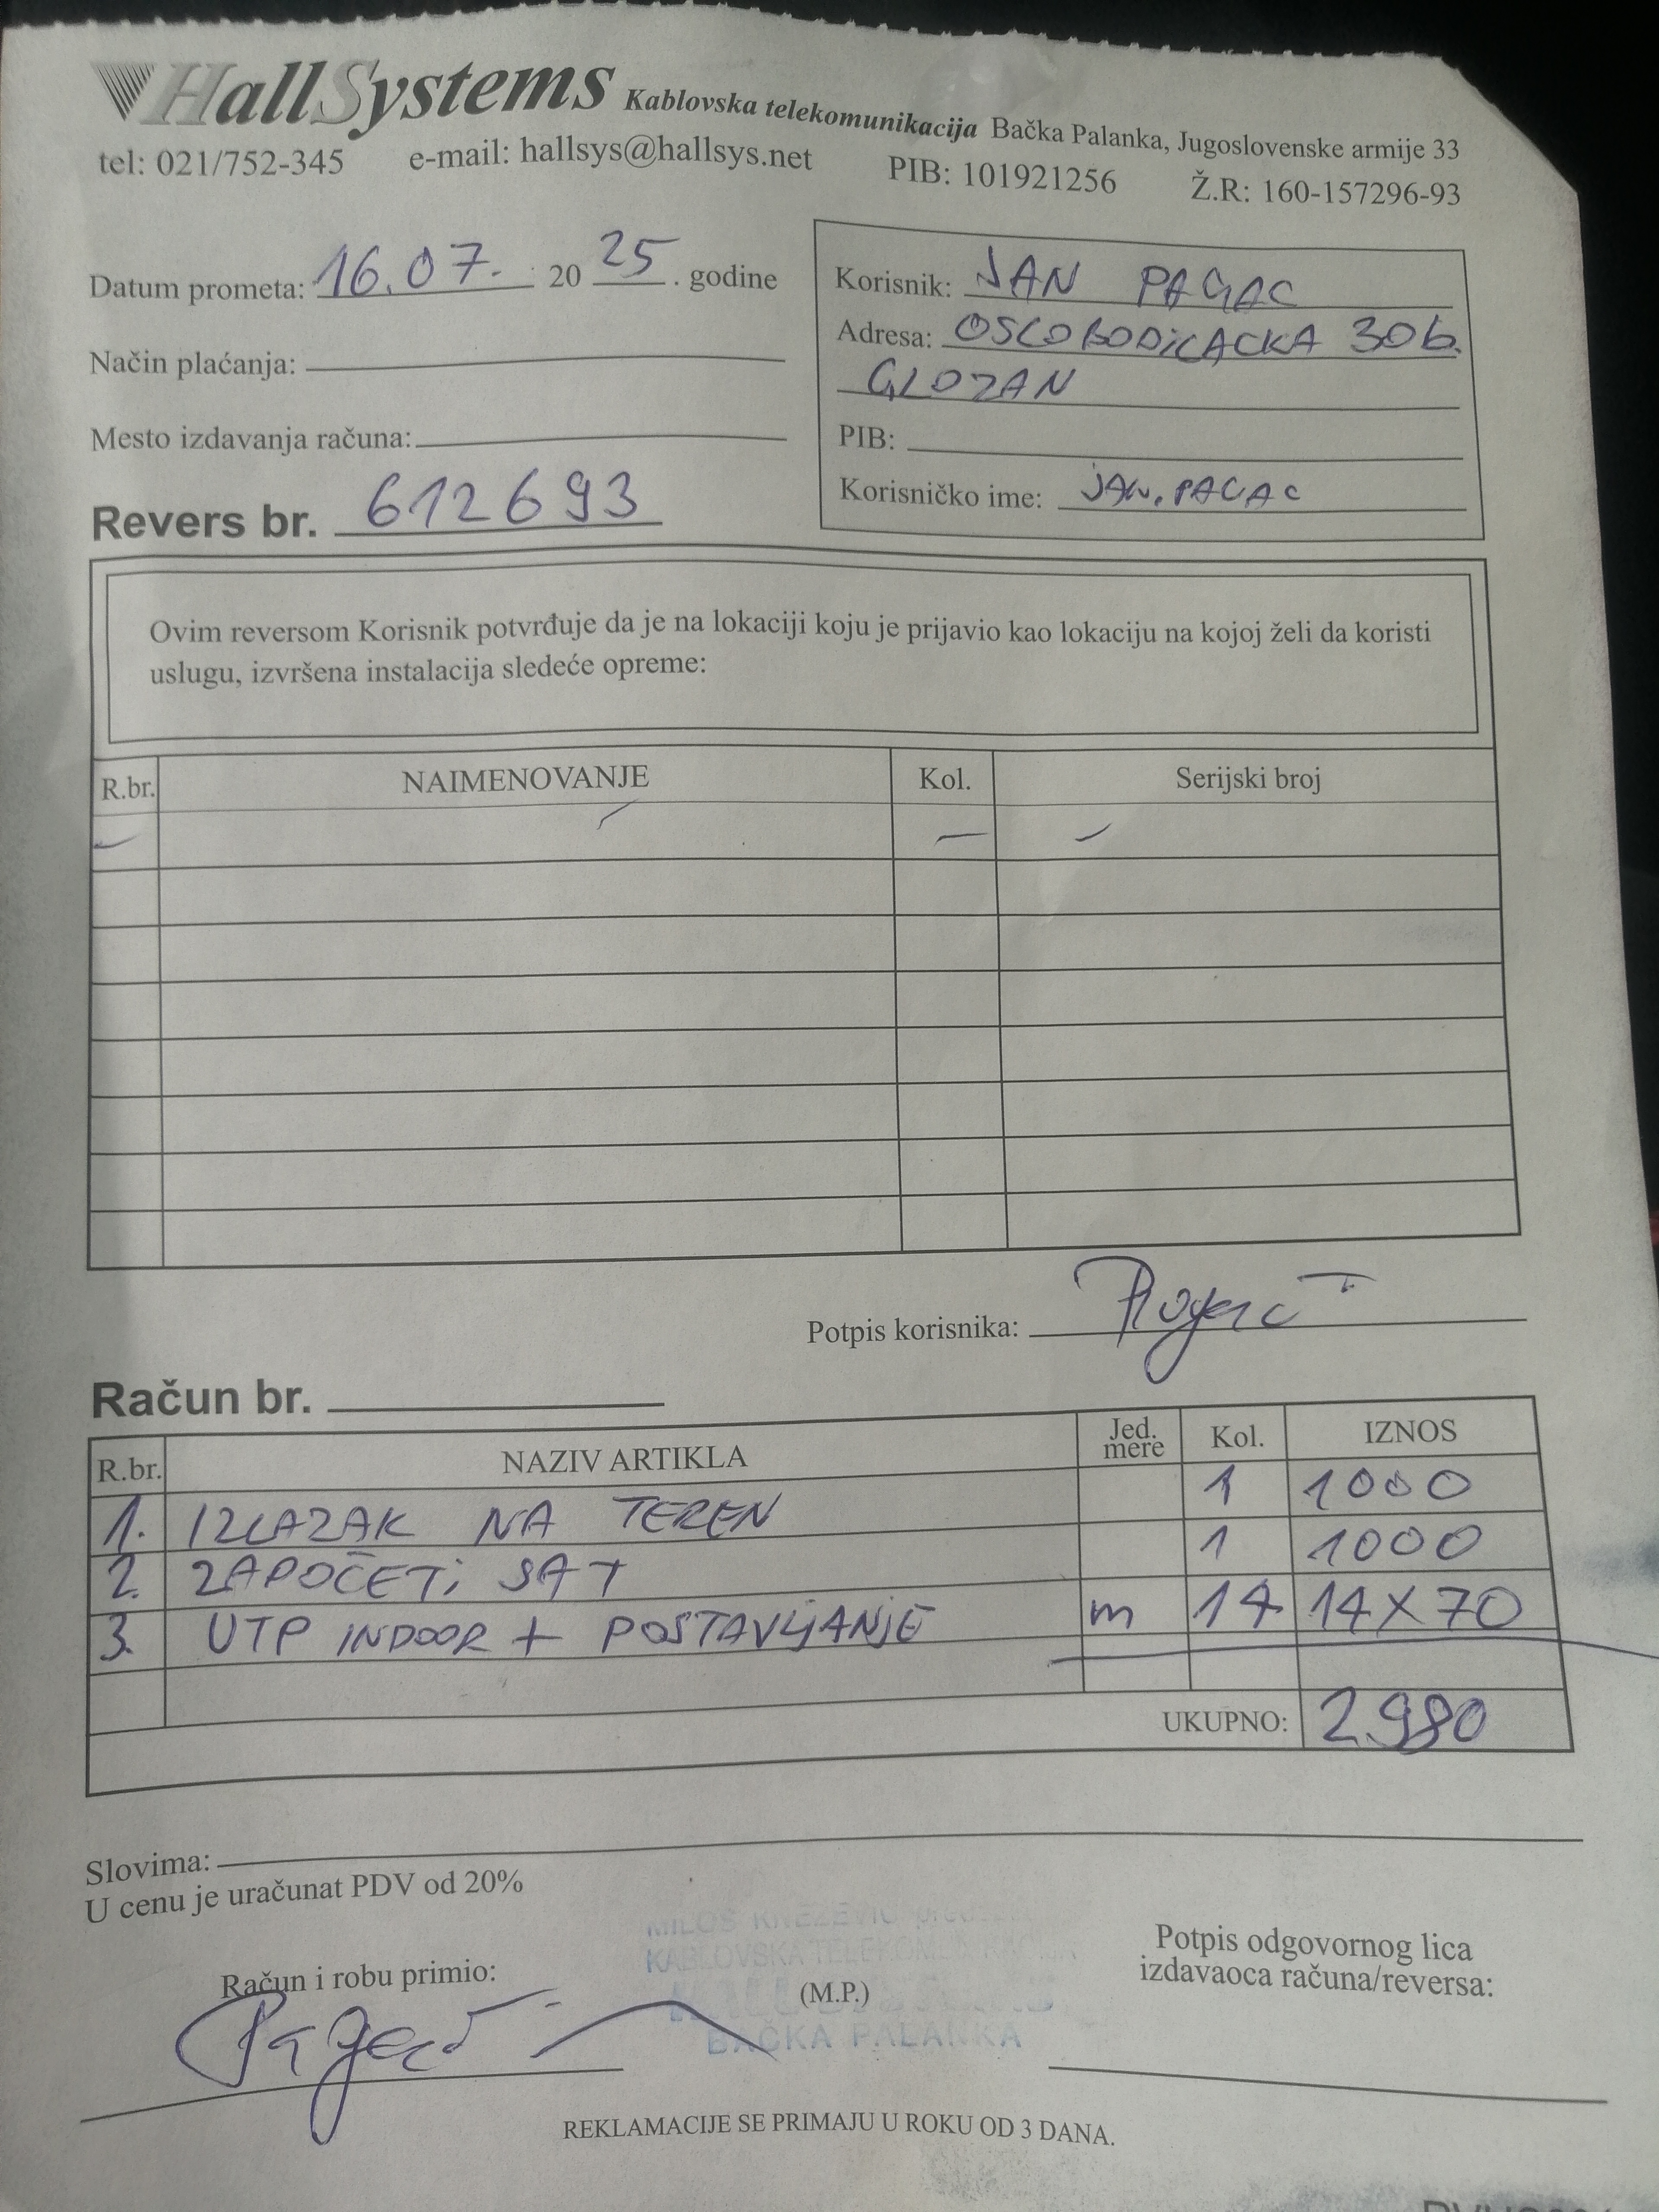 HallSystems Kablovska telekomunikacija Bačka Palanka, Jugoslovenske armije 33
tel: 021/752-345 e-mail: hallsys@hallsys.net PIB: 101921256 Ž.R: 160-157296-93
Datum prometa: 16.07. 20 25 . godine
Način plaćanja:
Mesto izdavanja računa:
Revers br. 612693
Korisnik: JAN PAGAC
Adresa: OSLOBODILACKA 30b.
GLOZAN
PIB:
Korisničko ime: JAN.PAGAC
Ovim reversom Korisnik potvrđuje da je na lokaciji koju je prijavio kao lokaciju na kojoj želi da koristi
uslugu, izvršena instalacija sledeće opreme:
R.br. NAIMENOVANJE Kol. Serijski broj
Potpis korisnika:
Račun br.
R.br. NAZIV ARTIKLA Jed. mere Kol. IZNOS
1. IZLAZAK NA TEREN 1 1000
2. ZAPOČETi SAT 1 1000
3. UTP INDOOR + POSTAVLJANJE m 14 14X70
UKUPNO: 2980
Slovima:
U cenu je uračunat PDV od 20%
MILOŠ KNEŽEVIĆ
KABLOVSKA
BAČKA PALANKA
Račun i robu primio:
(M.P.)
Potpis odgovornog lica
izdavaoca računa/reversa:
REKLAMACIJE SE PRIMAJU U ROKU OD 3 DANA.